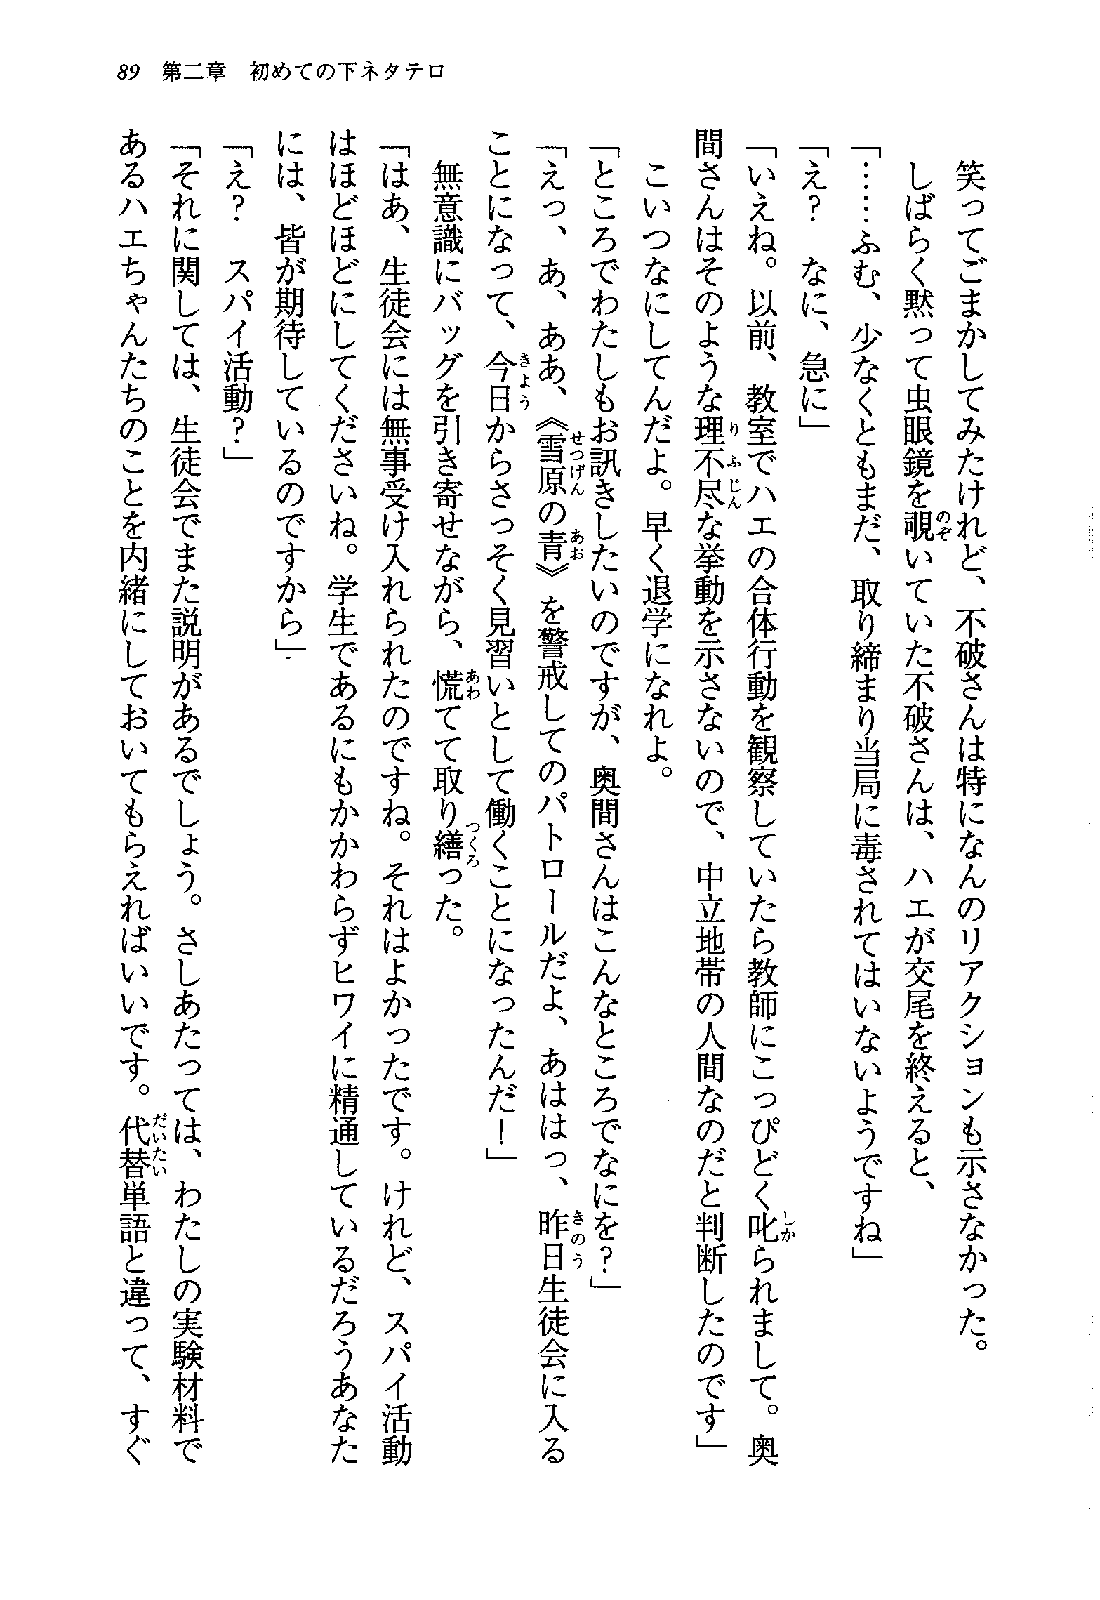 89 第二章 初めての下ネタテロ
笑ってごまかしてみたけれど、不破さんは特になんのリアクションも示さなかった。
しばらく黙って虫眼鏡を覗いていた不破さんは、ハエが交尾を終えると、
「……ふむ、少なくともまだ、取り締まり当局に毒されてはいないようですね」
「え？　なに、急に」
「いえね。以前、教室でハエの合体行動を観察していたら教師にこっぴどく叱られまして。奥
間さんはそのような理不尽な挙動を示さないので、中立地帯の人間なのだと判断したのです」
こいつなにしてんだよ。早く退学になれよ。
「ところでわたしもお訊きしたいのですが、奥間さんはこんなところでなにを？」
「えっ、あ、ああ、《雪原の青》を警戒してのパトロールだよ、あははっ、昨日生徒会に入る
ことになって、今日からさっそく見習いとして働くことになったんだ！」
無意識にバッグを引き寄せながら、慌てて取り繕った。
「はあ、生徒会には無事受け入れられたのですね。それはよかったです。けれど、スパイ活動
はほどほどにしてくださいね。学生であるにもかかわらずヒワイに精通しているだろうあなた
には、皆が期待しているのですから」
「え？　スパイ活動？」
「それに関しては、生徒会でまた説明があるでしょう。さしあたっては、わたしの実験材料で
あるハエちゃんたちのことを内緒にしておいてもらえればいいです。代替単語と違って、すぐ